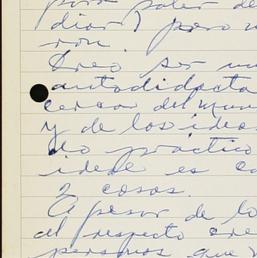 para poder de
dior) pero n
ron.
Creo ser un
autodidacta
cerca del mun
y de los ideas
do practico
ideal es co
2 cosas.
A pesar de lo
al respecto cre
personas que